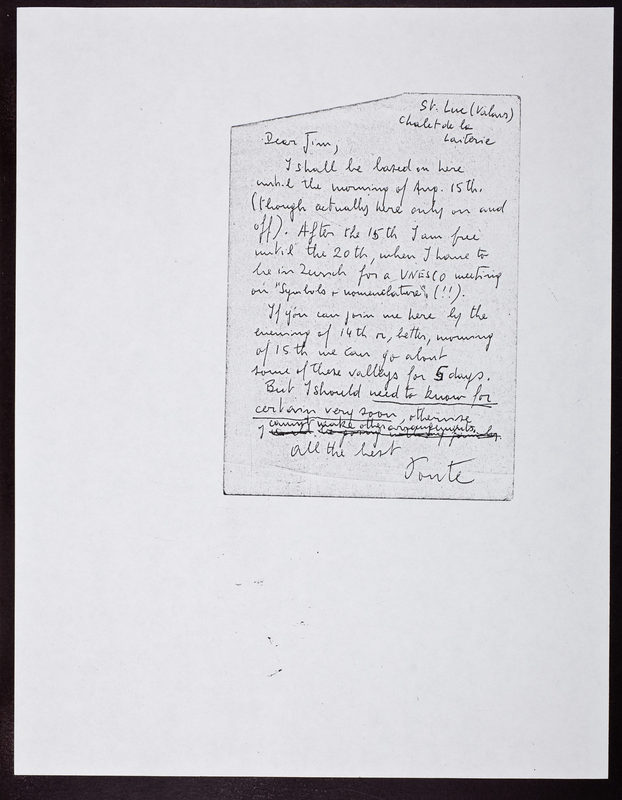 St. Luc (Valais)
Chalet de la
Laiterie
Dear Jim,
I shall be based on here
until the morning of Aug. 15th.
(though actually here only on and
off). After the 15th I am free
until the 20th, when I have to
be in Zurich for a UNESCO meeting
on "Symbols + nomenclature" (!!).
If you can join me here by the
evening of 14th or, better, morning
of 15th we can go about
some of these valleys for 5 days.
But I should need to know for
certain very soon, otherwise
I cannot make other arrangements.
All the best
Ponte